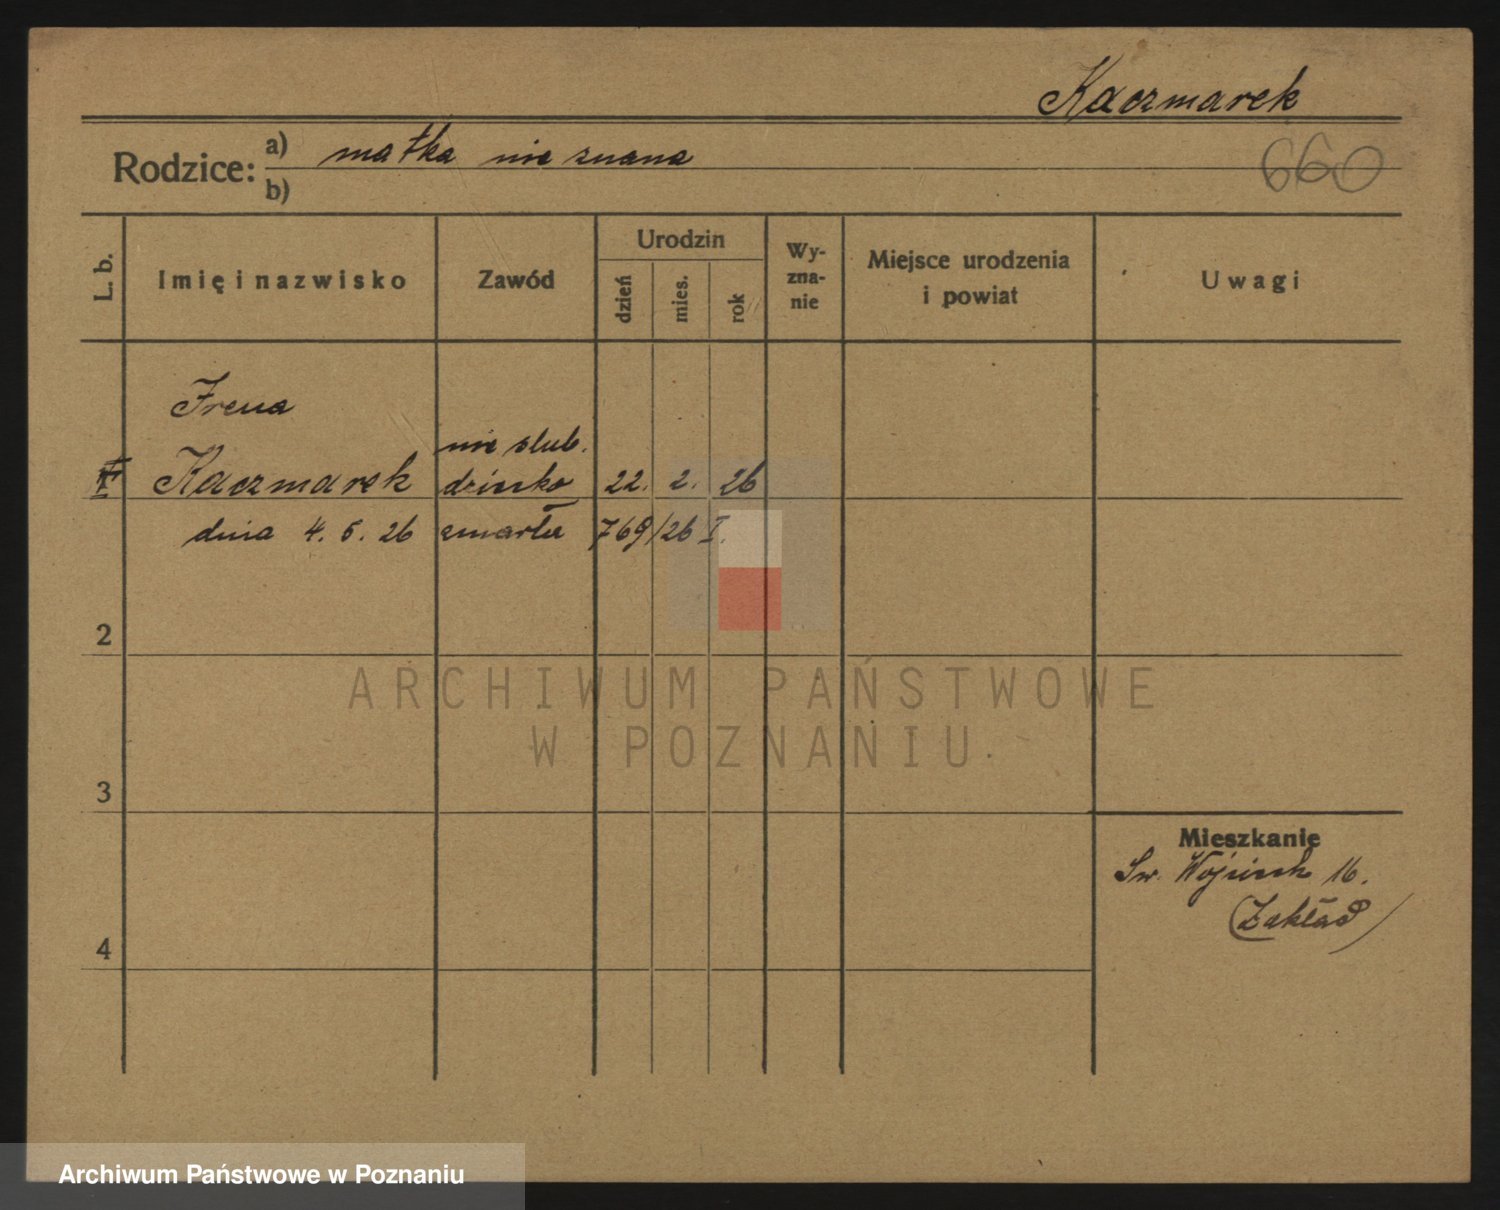 Kaczmarek
660
Rodzice: a) matka nie znana
b)
L. b.
Imię i nazwisko
Zawód
Urodzin
dzień
mies.
rok
Wy-
zna-
nie
Miejsce urodzenia
i powiat
Uwagi
Irena
nie slub.
Kaczmarek dziecko 22. 2. 26
dnia 4. 5. 26 zmarła 769/26 I.
2
3
4
Mieszkanie
Św. Wojciech 16.
(Zakład)
ARCHIWUM PAŃSTWOWE
W POZNANIU
Archiwum Państwowe w Poznaniu